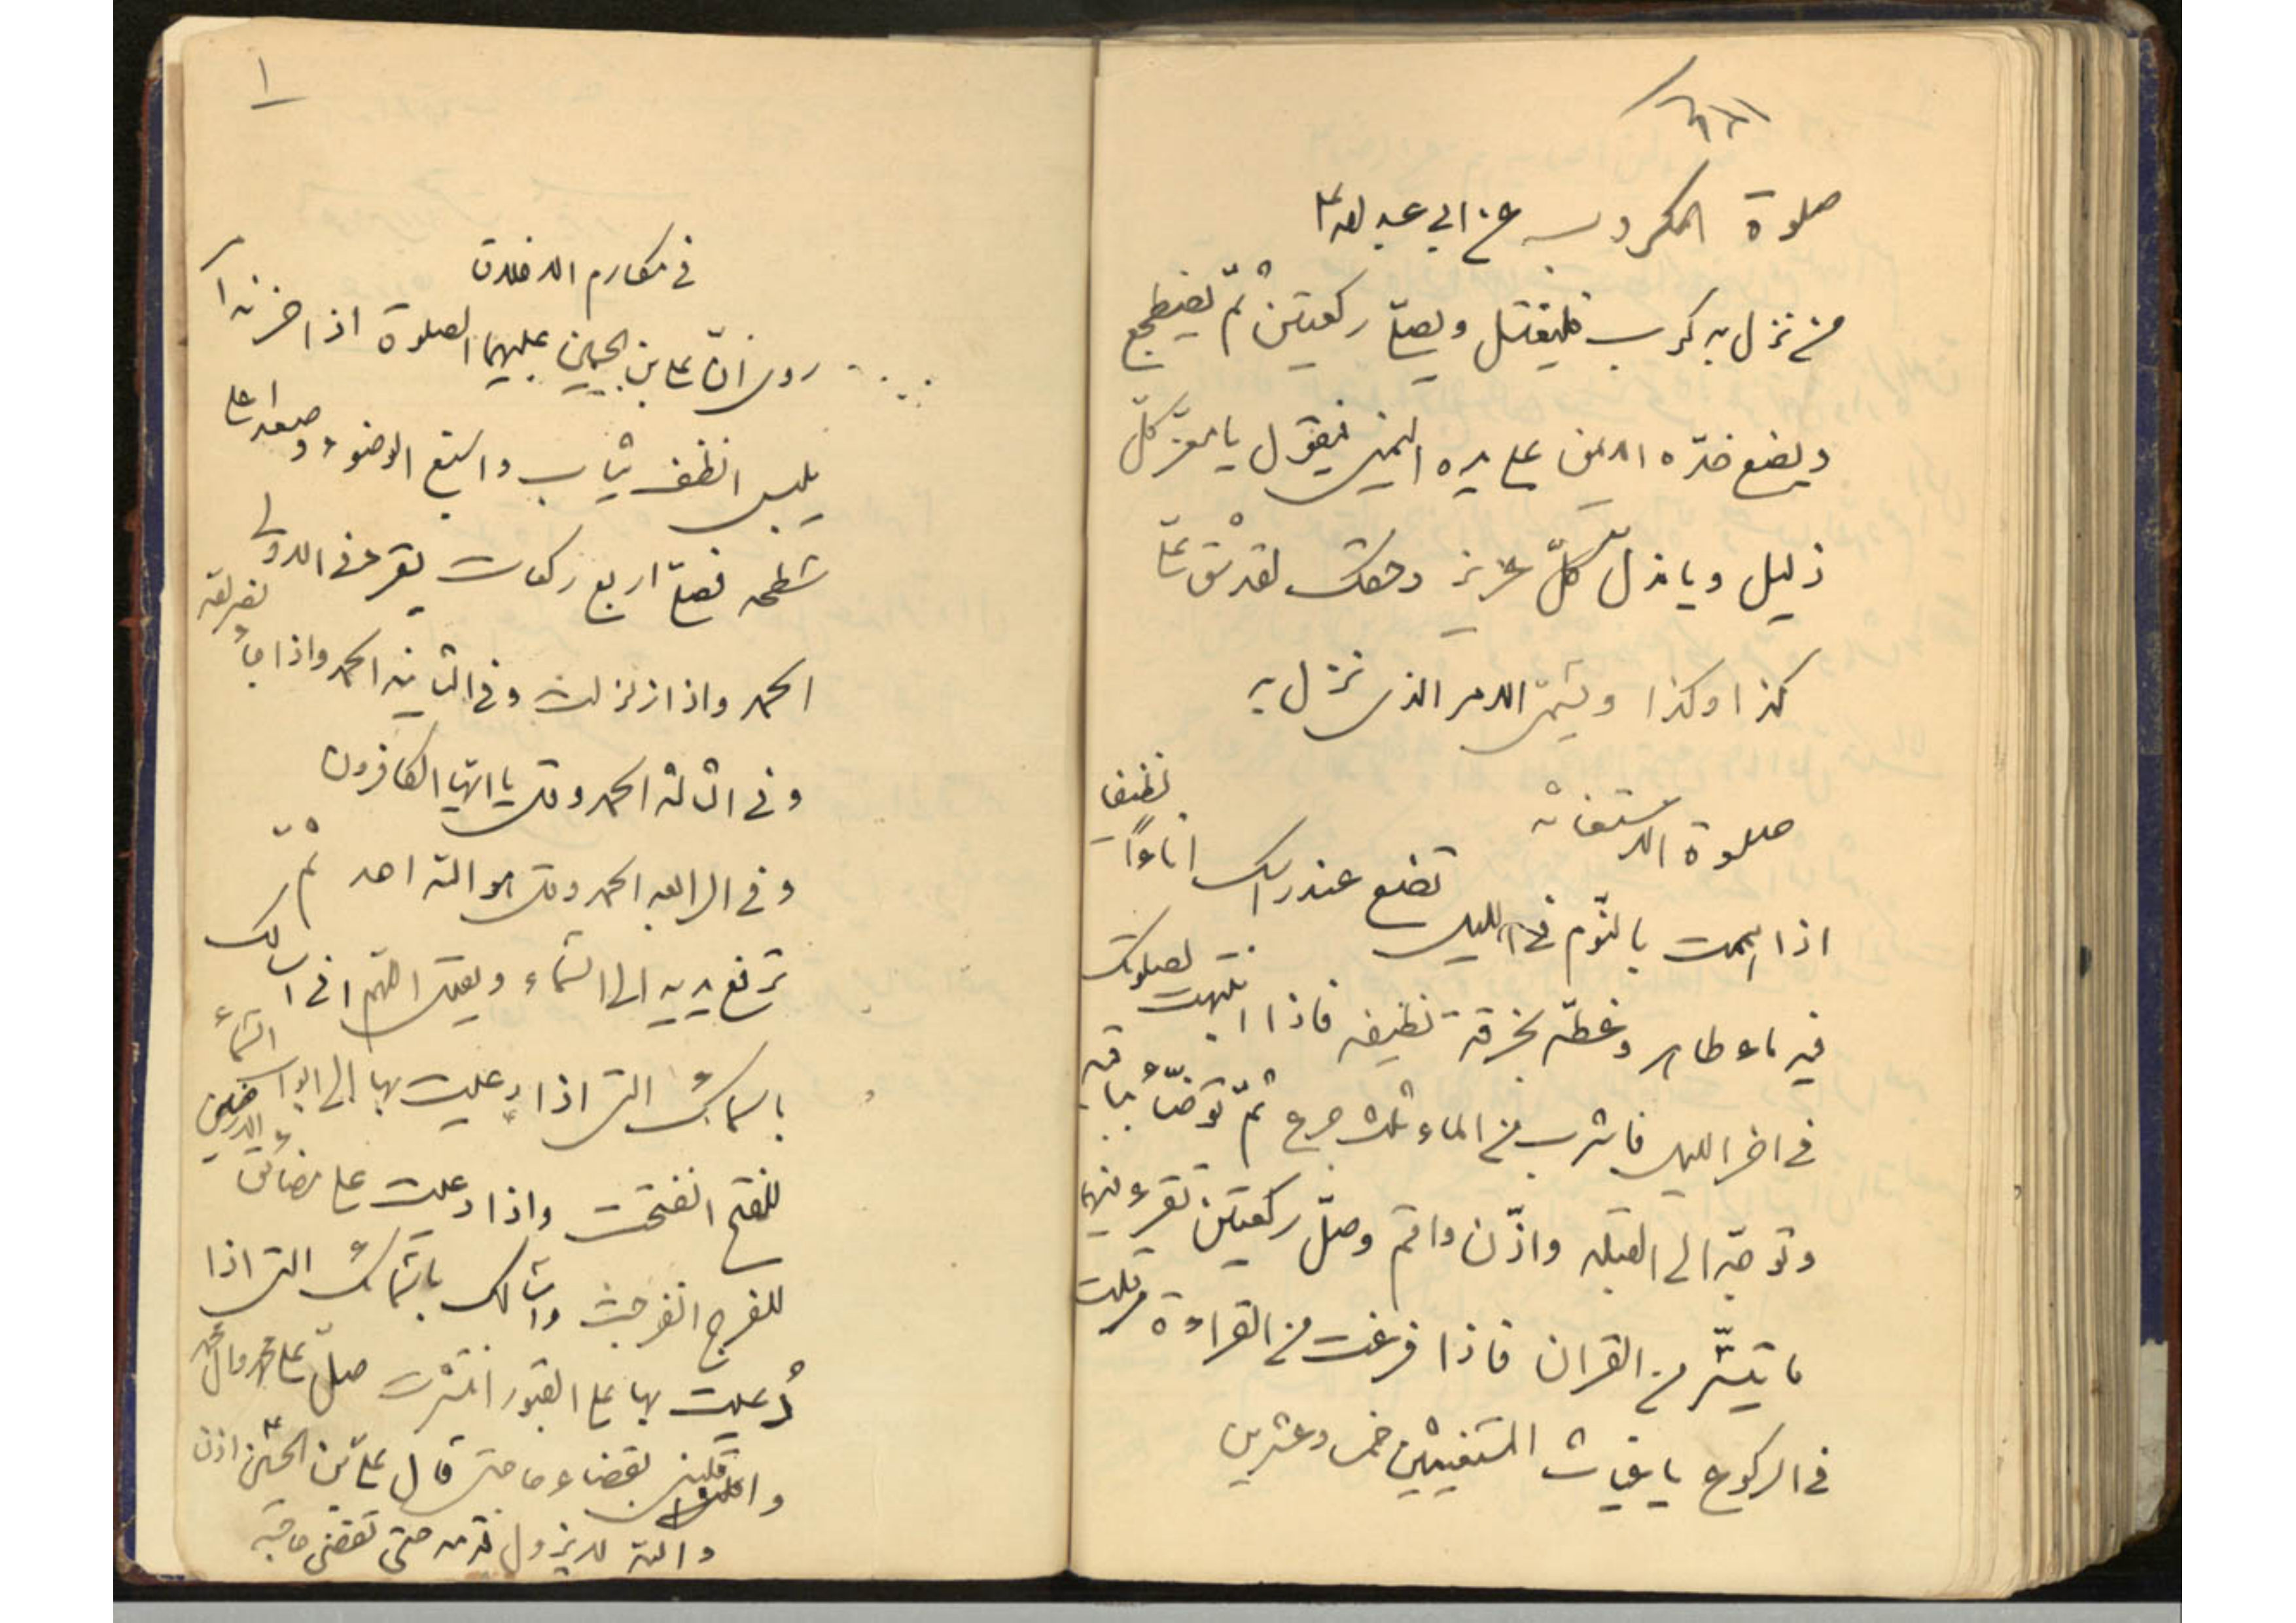 صلوة المكروب عن ابي عبد الله ع
من نزل به كرب فليغتسل وليصلّ ركعتين ثمّ يضطجع
ويضع خدّه الايمن على يده اليمنى فيقول يا معزّ كلّ
ذليل ويا مذلّ كلّ عزيز وحقك لقد شق علىّ
كذا وكذا ويسمّى الامر الذى نزل به
صلوة الاستغاثه
اذا هممت بالنّوم فى الليل تضع عند راسك اناءاً نظيفا
فيه ماء طاهر وغطّه بخرقة نظيفه فاذا انتبهت لصلوتك
فى اخر الليل فاشرب من الماء ثلث جرع ثمّ توضّأ بباقيه
وتوجّه الى القبله واذّن واقم وصلّ ركعتين تقرء فيهما
ما تيسّر من القران فاذا فرغت من القراءة قلت
فى الركوع يا غياث المستغيثين خمس وعشرين
١
فى مكارم الاخلاق
روى انّ على بن الحسين عليهما الصلوة اذا احزنه ا
يلبس انظف ثياب واسبغ الوضوء وصعد اعلى
سطحه فصلّى اربع ركعات يقرء فى الاولى
الحمد واذا زلزلت وفى الثانيه الحمد واذا جاء نصر الله
وفى الثالثه الحمد وقل يا ايّها الكافرون
وفى الرابعه الحمد وقل هو الله احد ثمّ
ترفع يديه الى السّماء ويقول اللهم انى اسالك
باسمائك التى اذا دعيت بها الى ابواب السّماء
للفتح انفتحت واذا دعيت على مضائق الارضين
للفرج انفرجت واسالك باسمائك التى اذا
دُعيت بها على القبور انتشرت صلّ على محمد وال محمد
واقلبنى بقضاء حاجتى قال علىّ بن الحسين ع اذن
والله لا يزول قدمه حتى تقضى حاجته